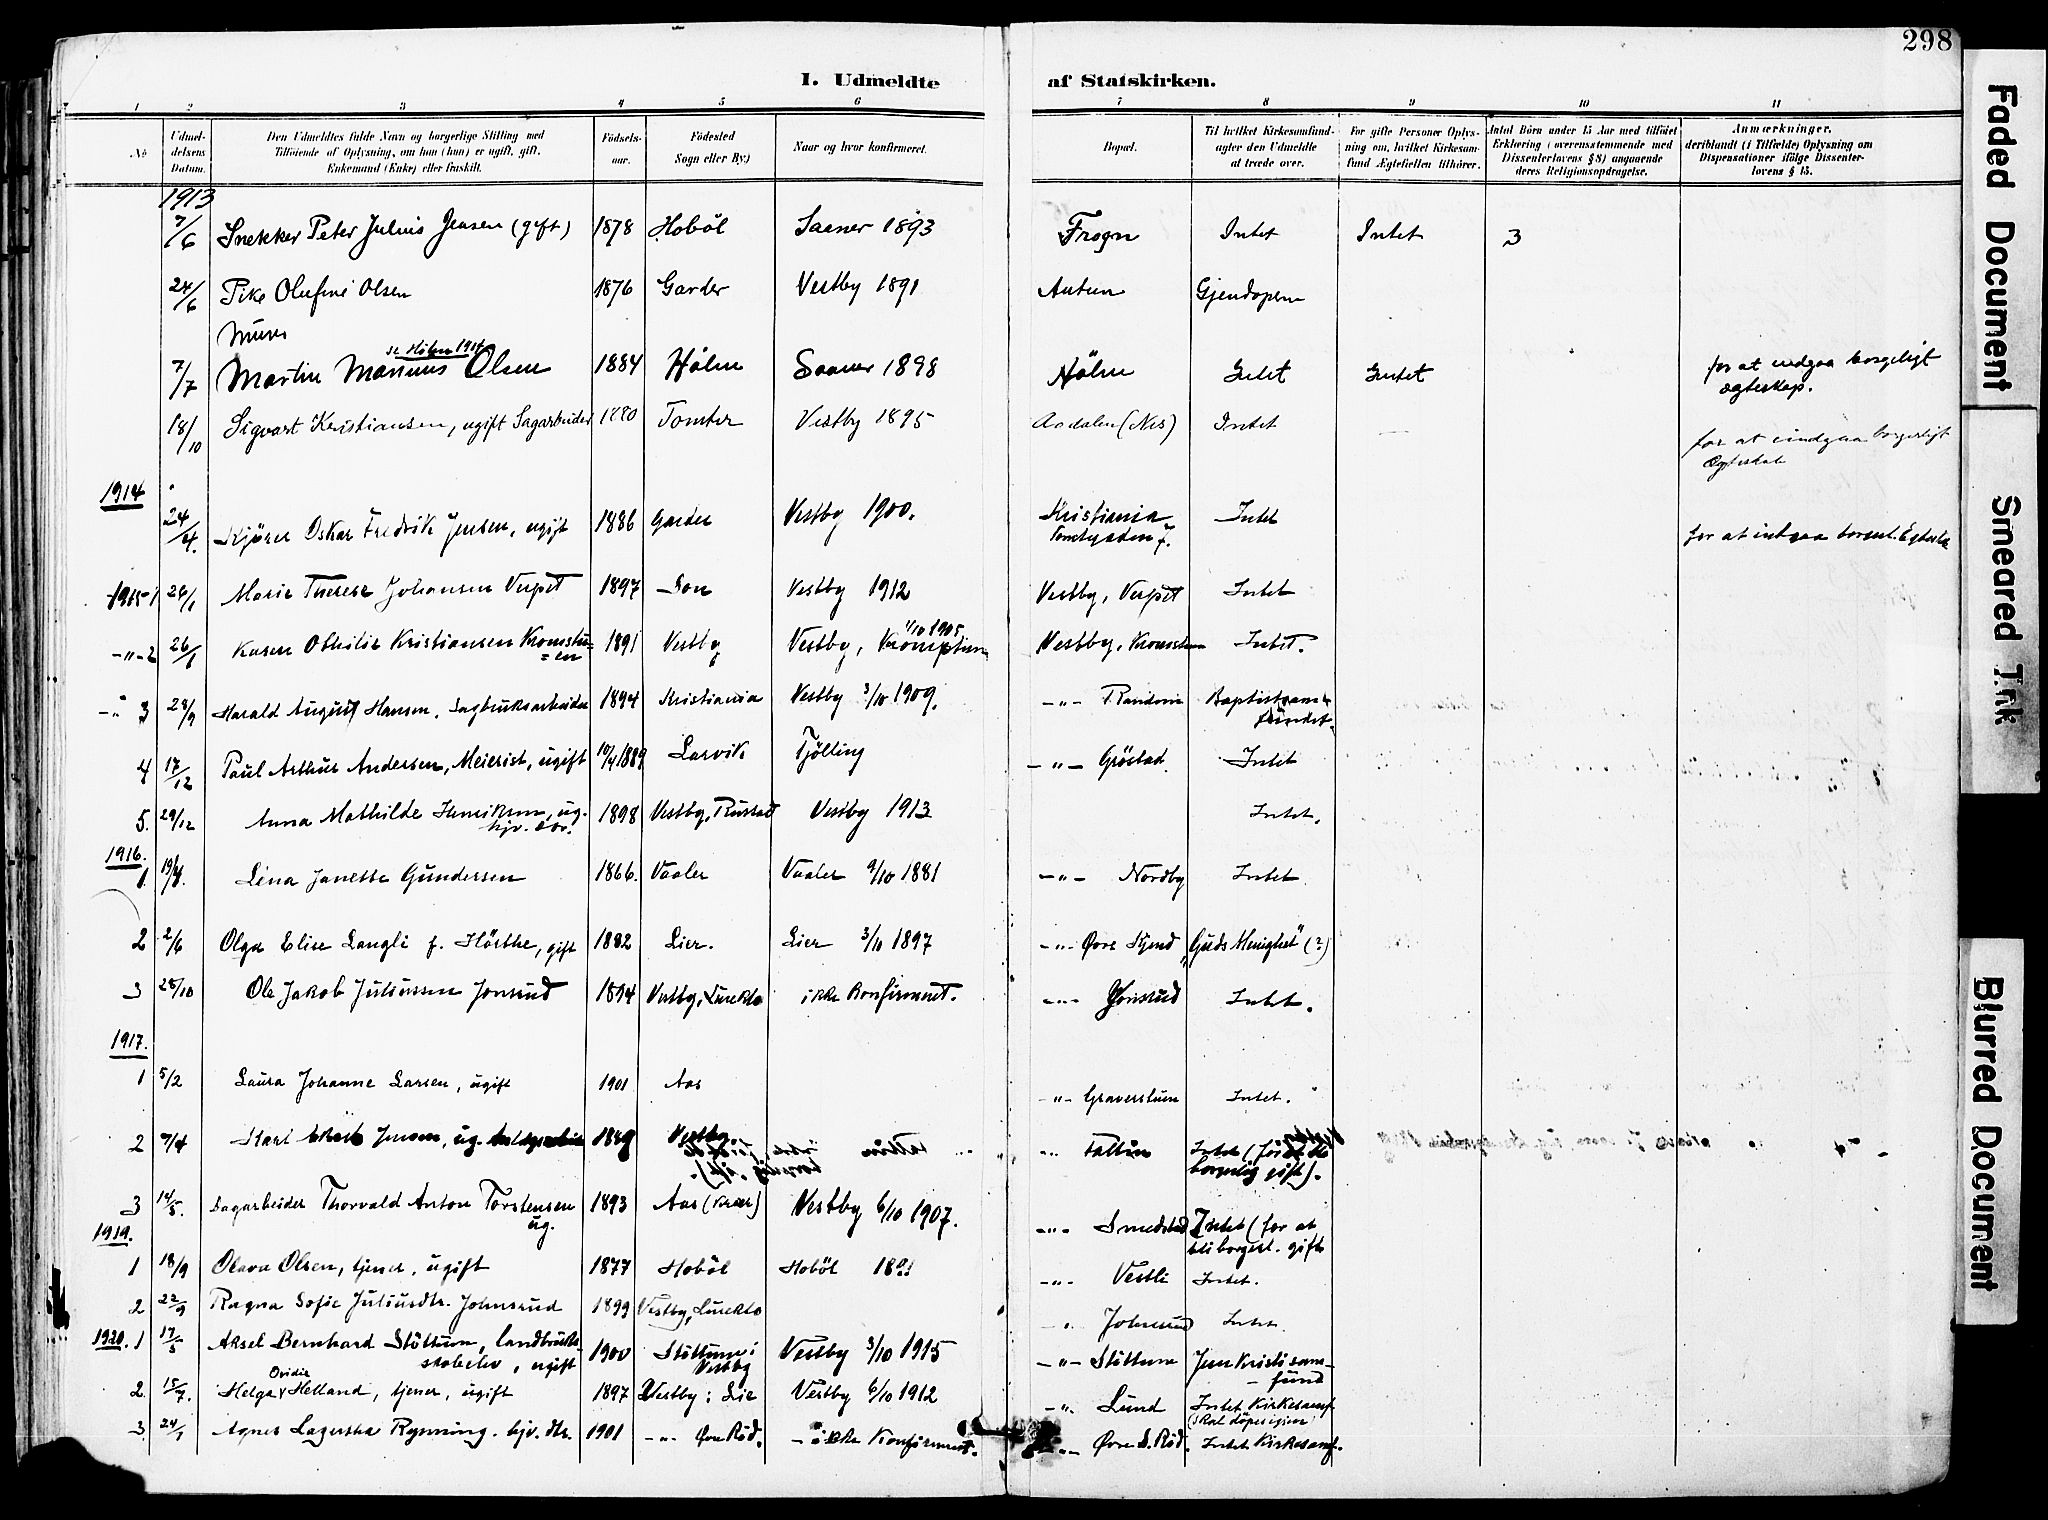 298
I. Udmeldte af Statskirken.
1 2 3 4 5 6 7 8 9 10 11
No
Udmel-
delsens
Datum.
Den Udmeldtes fulde Navn og borgerlige Stilling med
Tilföiende af Oplysning, om han (hun) er ugift, gift,
Enkemand (Enke) eller fraskilt.
Födsels-
aar.
Födested
Sogn eller By.)
Naar og hvor konfirmeret.
Bopæl.
Til hvilket Kirkesamfund
agter den Udmeldte
at træde over.
For gifte Personer Oplys-
ning om, hvilket Kirkesam-
fund Ægtefællen tilhörer.
Antal Börn under 15 Aar med tilföiet
Erklæring (overensstemmende med
Dissenterlovens § 8) angaaende
deres Religionsopdragelse.
Anmærkninger,
deriblandt (i Tilfælde) Oplysning om
Dispensationer ifölge Dissenter-
lovens § 15.
1913
7/6 Snekker Peter Julius Jensen (gift) 1878 Hoböl Saaner 1893 Frogn Intet Intet 3
24/6 Pike Olufine Olsen 1876 Garder Vestby 1891 Gjendöpern
Murer
se Hölen 1914
7/7 Martin Marinius Olsen 1884 Hölen Saaner 1898 Hölen Intet Intet for at indgaa borgeligt
ægteskap.
18/10 Sigvart Kristiansen, ugift Sagarbeider 1880 Tomter Vestby 1895 Aadalen (Nes) Intet — for at indgaa borgerligt
Ægteskab
1914
24/4. Kjörer Oskar Fredrik Jensen, ugift 1886 Garder Vestby 1900. Kristiania Intet
Tomtegaden 7. for at indgaa borgerl. Egtesk
1915 1 26/1 Marie Therese Johansen Verpet 1897 Son Vestby 1912 Vestby, Verpet Intet
-"- 2 26/1 Karen Othilie Kristiansen Kromstu= 1891 Vestby Vestby, 1/10 1905, Vestby, Intet.
= en
-" 3 28/9 Harald August Hansen, Sagbruksarbeider 1894 Kristiania Vestby 3/10 1909. -"- Randem Baptistsam-
fundet.
4 17/12 Paul Arthur Andersen, Meierist, ugift 10/4 1889 Larvik Tjölling -"- Gröstad Intet
5. 29/12 Anna Mathilde Henriksen, ug. 1898 Vestby, Rustad Vestby 1913 Intet.
hjv. dtr.
1916.
1. 19/4. Lina Janette Gundersen 1866. Vaaler Vaaler 9/10 1881 -"- Nordby Intet
2 2/6 Olga Elise Langli f. Hörthe, gift 1882 Lier. Lier 3/10 1897 -"- Övre Kjend "Guds Menighet" (?)
3 28/10 Ole Jakob Juliussen Jonsrud 1894 Vestby, Lurekto ikke konfirmert. -"- Jonsrud Intet.
1917.
1 5/2 Laura Johanne Larsen, ugift 1901 Aas -"- Graverstuen Intet.
2 7/4 Karl Jensen, ug. 1889 Vestby. -"- Tattun Intet (for at bli
borgerlig gift).
3 14/5. Sagarbeider Thorvald Anton Torstensen 1893 Aas (Kroer) Vestby 6/10 1907. -"- Smedstad Intet (for at
ug. bli borgerl. gift
1919.
1 18/9 Olava Olsen, tjener, ugift 1877 Hoböl Hoböl 1891 -"- Vestli Intet.
2 22/9 Ragna Sofie Juliusdtr. Johnsrud 1899 Vestby, Lurekto " Johnsrud Intet.
1920. 1 17/5 Aksel Bernhard Stöttum, landbruks- 1900 Stöttum i Vestby 3/10 1915 -"- Stöttum Jesu Kristi sam-
skoleelev, ugift Vestby fund
2. 15/7. Helga Ovidia Helland, tjener, ugift 1897 Vestby: Lie Vestby 6/10 1912 -"- Lund Intet Kirkesamf.
(skal döpes igjen)
3 24/1 Agnes Lagertha Rynning, hjv. dtr. 1901 -"- Övre Röd. - ikke Konfirmert. -"- Övre S. Röd. Intet Kirkesamf.
Faded Document
Smeared Ink
Blurred Document